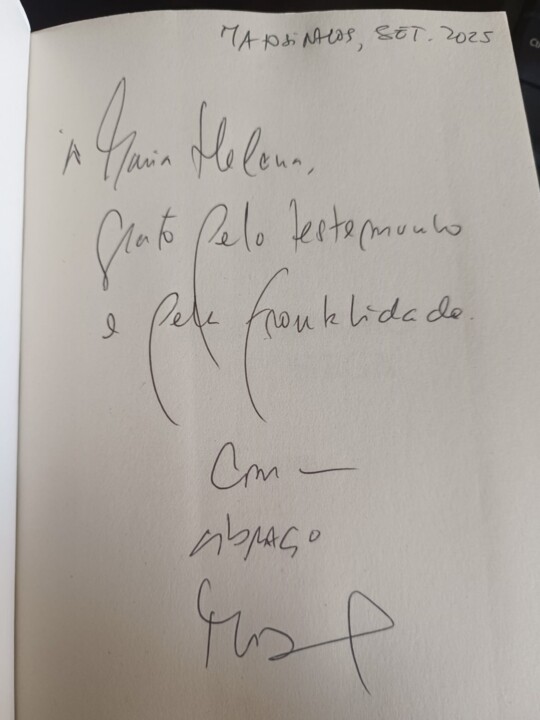 MATOSINHOS, SET. 2025
À Maria Helena,
grato pelo testemunho
e pela
Com
abraço